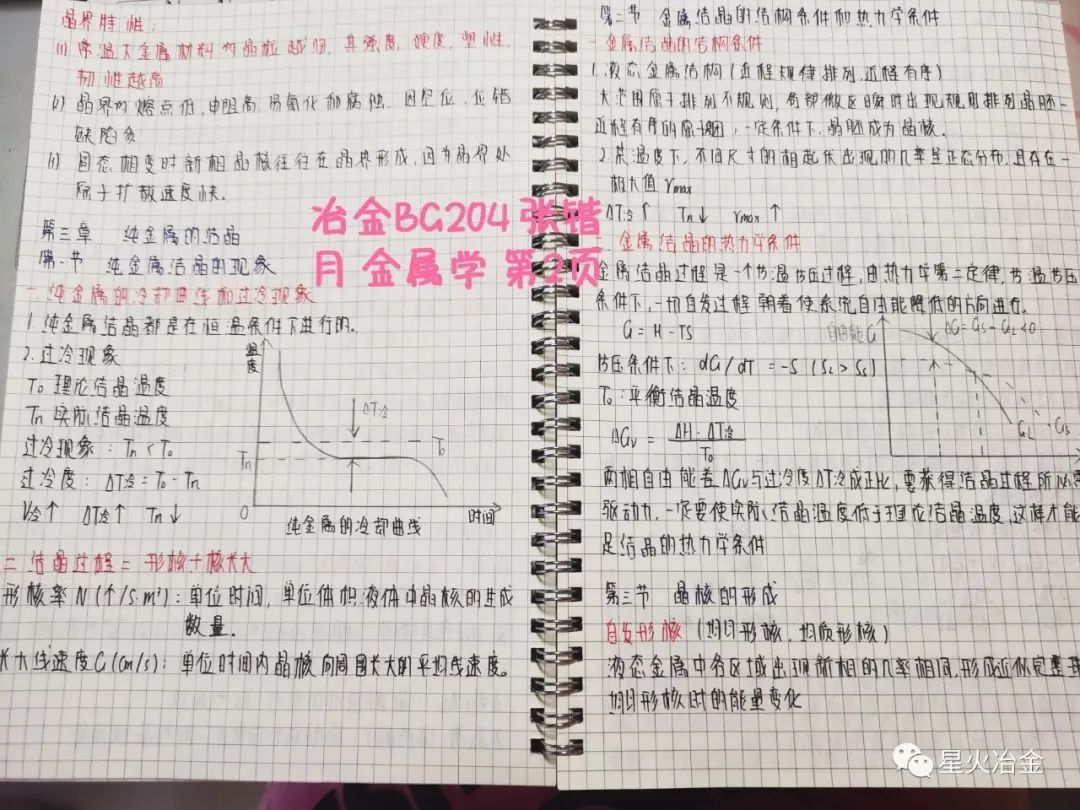 晶界特性:
(1) 常温下金属材料的晶粒越细,其强度,硬度,塑性,
韧性越高
(2) 晶界的熔点低,电阻高 易氧化和腐蚀.因空位,位错
缺陷多
(3) 固态相变时新相晶核往往在晶界形成,因为晶界处
原子扩散速度快.
第三章 纯金属的结晶
第一节 纯金属结晶的现象
一.纯金属的冷却曲线和过冷现象
1.纯金属结晶都是在恒温条件下进行的.
2.过冷现象
T₀ 理论结晶温度
Tn 实际结晶温度
过冷现象:Tn < T₀
过冷度:ΔT冷 = T₀ - Tn
V冷↑ ΔT冷↑ Tn↓
温度
ΔT冷
T₀
Tn
0
时间
纯金属的冷却曲线
二 结晶过程 = 形核+核长大
形核率 N (个/s·m³):单位时间,单位体积液体中晶核的生成
数量.
长大线速度 G (cm/s):单位时间内晶核向周围长大的平均线速度.
第二节 金属结晶的结构条件和热力学条件
一 金属结晶的结构条件
1.液态金属结构(近程规律排列,近程有序)
大范围原子排列不规则,局部微区瞬时出现规则排列晶胚=
近程有序的原子团,一定条件下,晶胚成为晶核.
2.某温度下,不同尺寸的相起伏出现的几率呈正态分布,且存在一
极大值 rmax
ΔT冷↑ Tn↓ rmax↑
二 金属结晶的热力学条件
金属结晶过程是一个恒温恒压过程,由热力学第二定律,恒温恒压
条件下,一切自发过程朝着使系统自由能降低的方向进行.
G = H - TS
恒压条件下:dG/dT = -S (SL > SS)
T₀:平衡结晶温度
ΔGv = ΔH·ΔT冷 / T₀
自由能G
ΔG = GS - GL < 0
GL
GS
两相自由能差ΔGv与过冷度ΔT冷成正比,要获得结晶过程所必需
驱动力,一定要使实际结晶温度低于理论结晶温度,这样才能
是结晶的热力学条件
第三节 晶核的形成
自发形核 (均匀形核,均质形核)
液态金属中各区域出现新相的几率相同,形成
均匀形核时的能量变化
冶金BG204 张锴
月 金属学 第2页
星火冶金